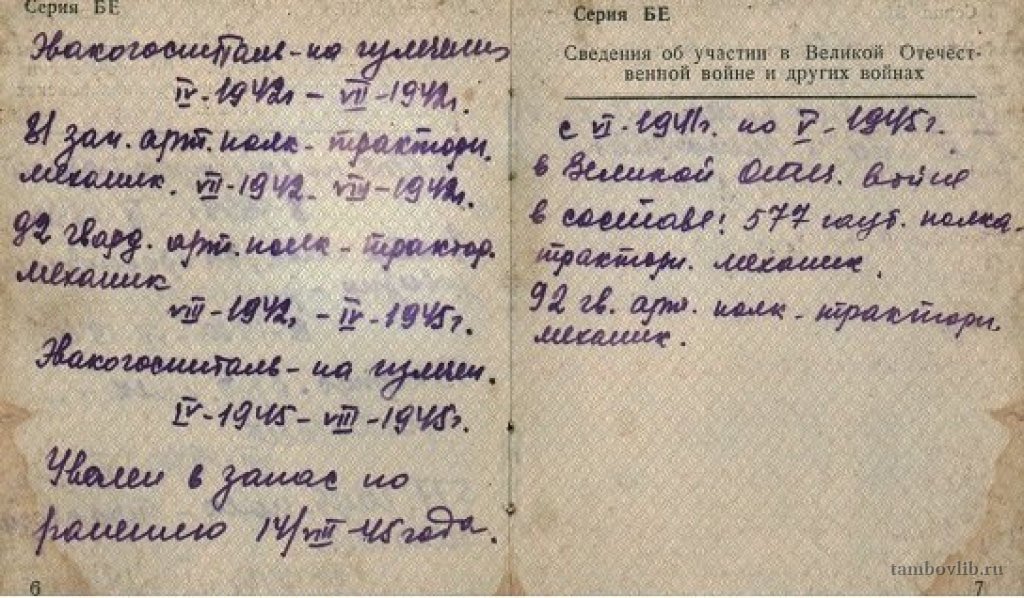 Серия БЕ
Эвакогоспиталь - на излечении
IV-1942г - VII-1942г.
81 зап. арт. полк - трактори.
механик. VII-1942. VIII-1942г.
92 гвард. арт. полк - трактор.
механик
VIII-1942г - IV-1945г.
Эвакогоспиталь - на излечен.
IV-1945 - VIII-1945г.
Уволен в запас по
ранению 14/VIII-45 года.
6
Серия БЕ
Сведения об участии в Великой Отечест-
венной войне и других войнах
с VI-1941г. по V-1945г.
в Великой Отеч. войне
в составе: 577 гауб. полка-
трактори. механик.
92 гв. арт. полк - трактори.
механик.
7
tambovlib.ru